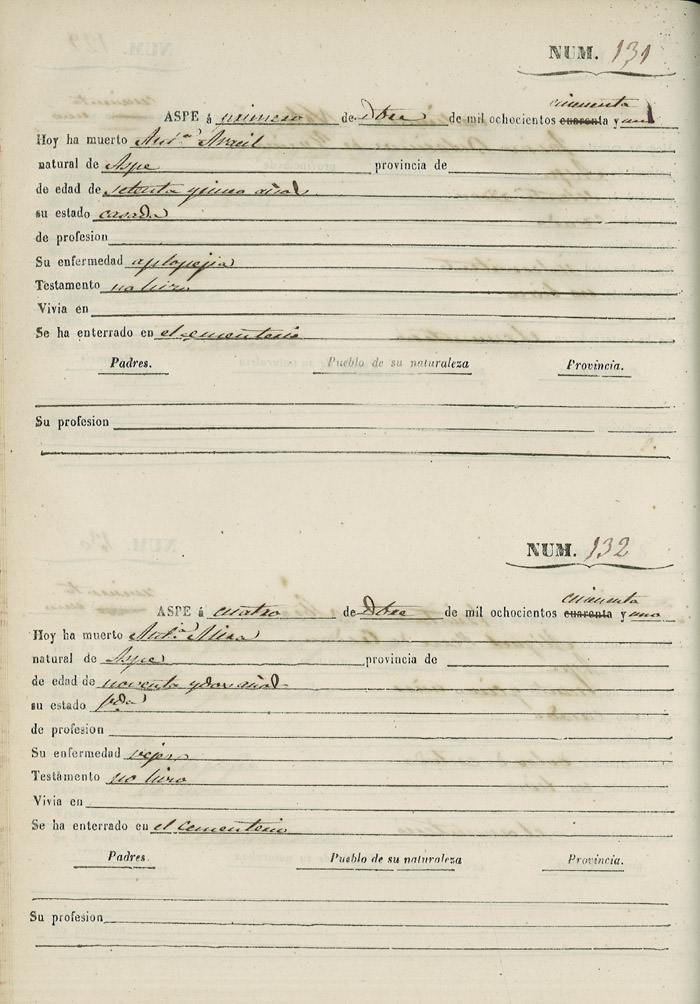 NUM. 131
cincuenta
ASPE á primero de Dbre de mil ochocientos cuarenta y uno
Hoy ha muerto Antª
natural de Aspe provincia de
de edad de setenta y cinco años
su estado casada
de profesion
Su enfermedad aplopejia
Testamento no hizo
Vivia en
Se ha enterrado en el cementerio
Padres. Pueblo de su naturaleza Provincia.
Su profesion
NUM. 132
cincuenta
ASPE á cuatro de Dbre de mil ochocientos cuarenta y uno
Hoy ha muerto Antª Mira
natural de Aspe provincia de
de edad de noventa y dos años
su estado Vda
de profesion
Su enfermedad vejez
Testamento no hizo
Vivia en
Se ha enterrado en el cementerio
Padres. Pueblo de su naturaleza Provincia.
Su profesion